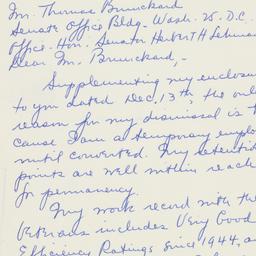 Mr. Thomas Brunckard
Senate Office Bldg- Wash. 25. D.C.
Office. Hon. Senator Herbert H Lehman
Dear Mr. Brunckard,-
Supplementing my enclosu
to you dated Dec. 13th, the onl
reason for my dismissal is t
cause I am a temporary emplo
until converted. My retentio
points are well within reach
for permanency.
My work record with the
Veterans includes Very Good
Efficiency Ratings since 1944, a